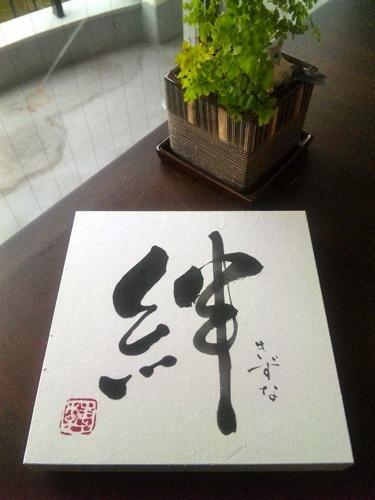 絆
きずな